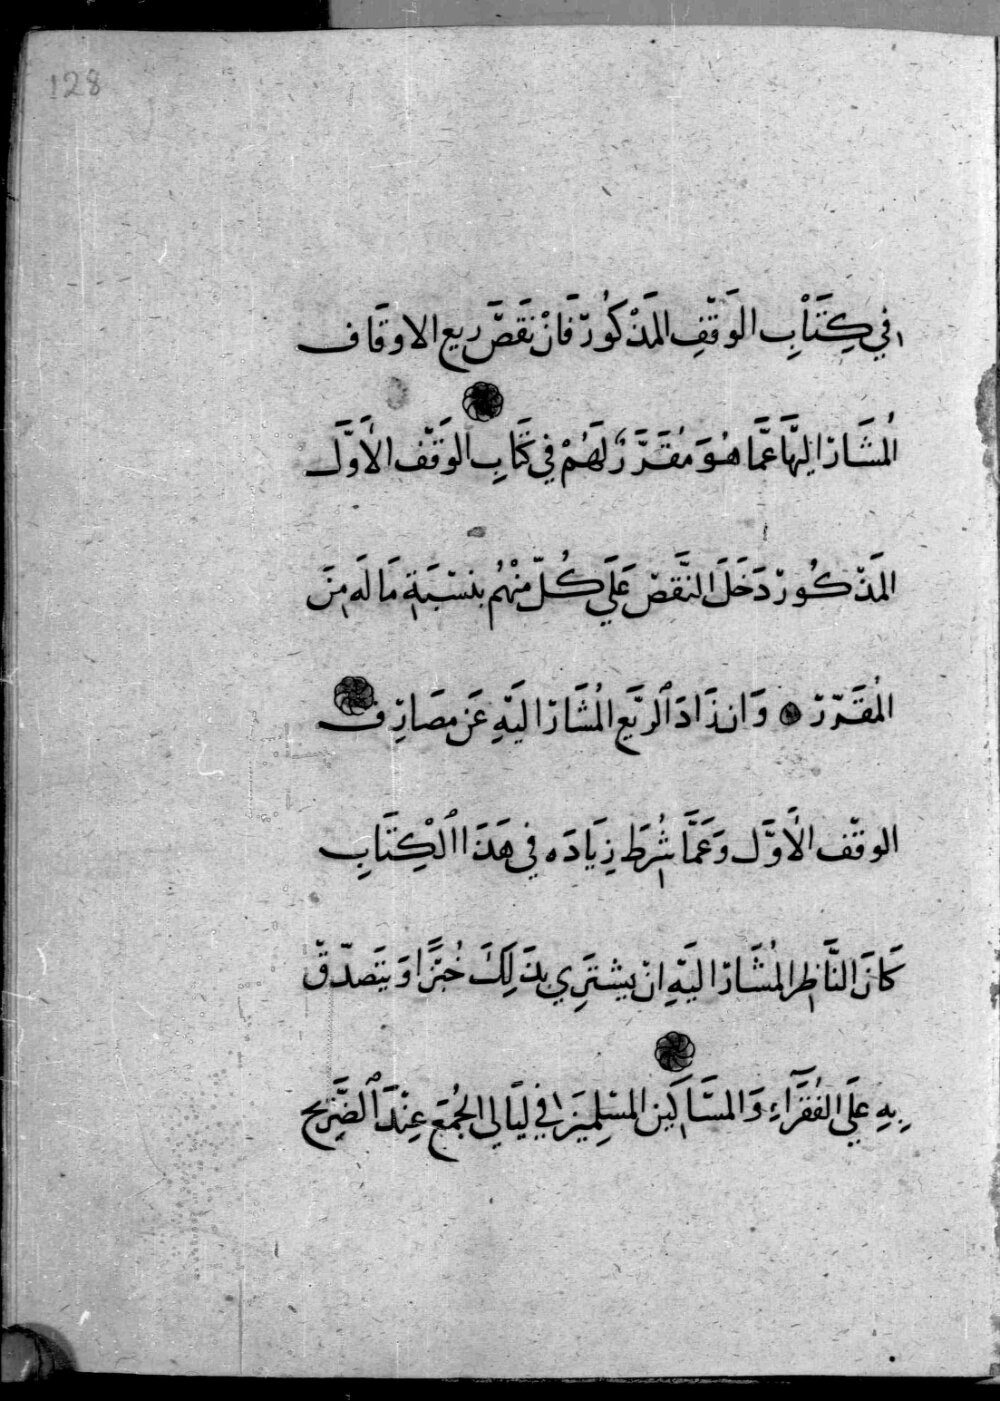 128
في كِتَابِ الوَقْفِ المَذْكُورْ فَانْ نَقَصَ ريع الاوقَاف
المُشَارْ اِليْهَا عَمَّا هُوَ مُقَرَّرٌ لَهُمْ فِي كتَابِ الوَقْف الأَوَّل
المَذْكُورْ دَخَلَ النَّقصْ عَلَي كُلّ مِنْهُمْ بنسْبَةِ مَا لَه مِنَ
المُقَرّرْ وَان زَادَ الريَع المُشَارْ اليَهِ عَن مصَارِف
الوقْف الأَوَّل وَعَمَّا شُرِطَ زِيَادَه فِي هَذَا الْكِتَابِ
كَانَ النَّاظِر المُشَارْ اليَهِ انْ يشتَرِي بذَلِكَ خُبْزًا وَيتَصدّقْ
بِهِ عَلَي الفُقَرَآءِ وَالمسَاكِين المسْلِمِيَن في ليَالي الجُمَع عِنْدَ الضَّرِيح